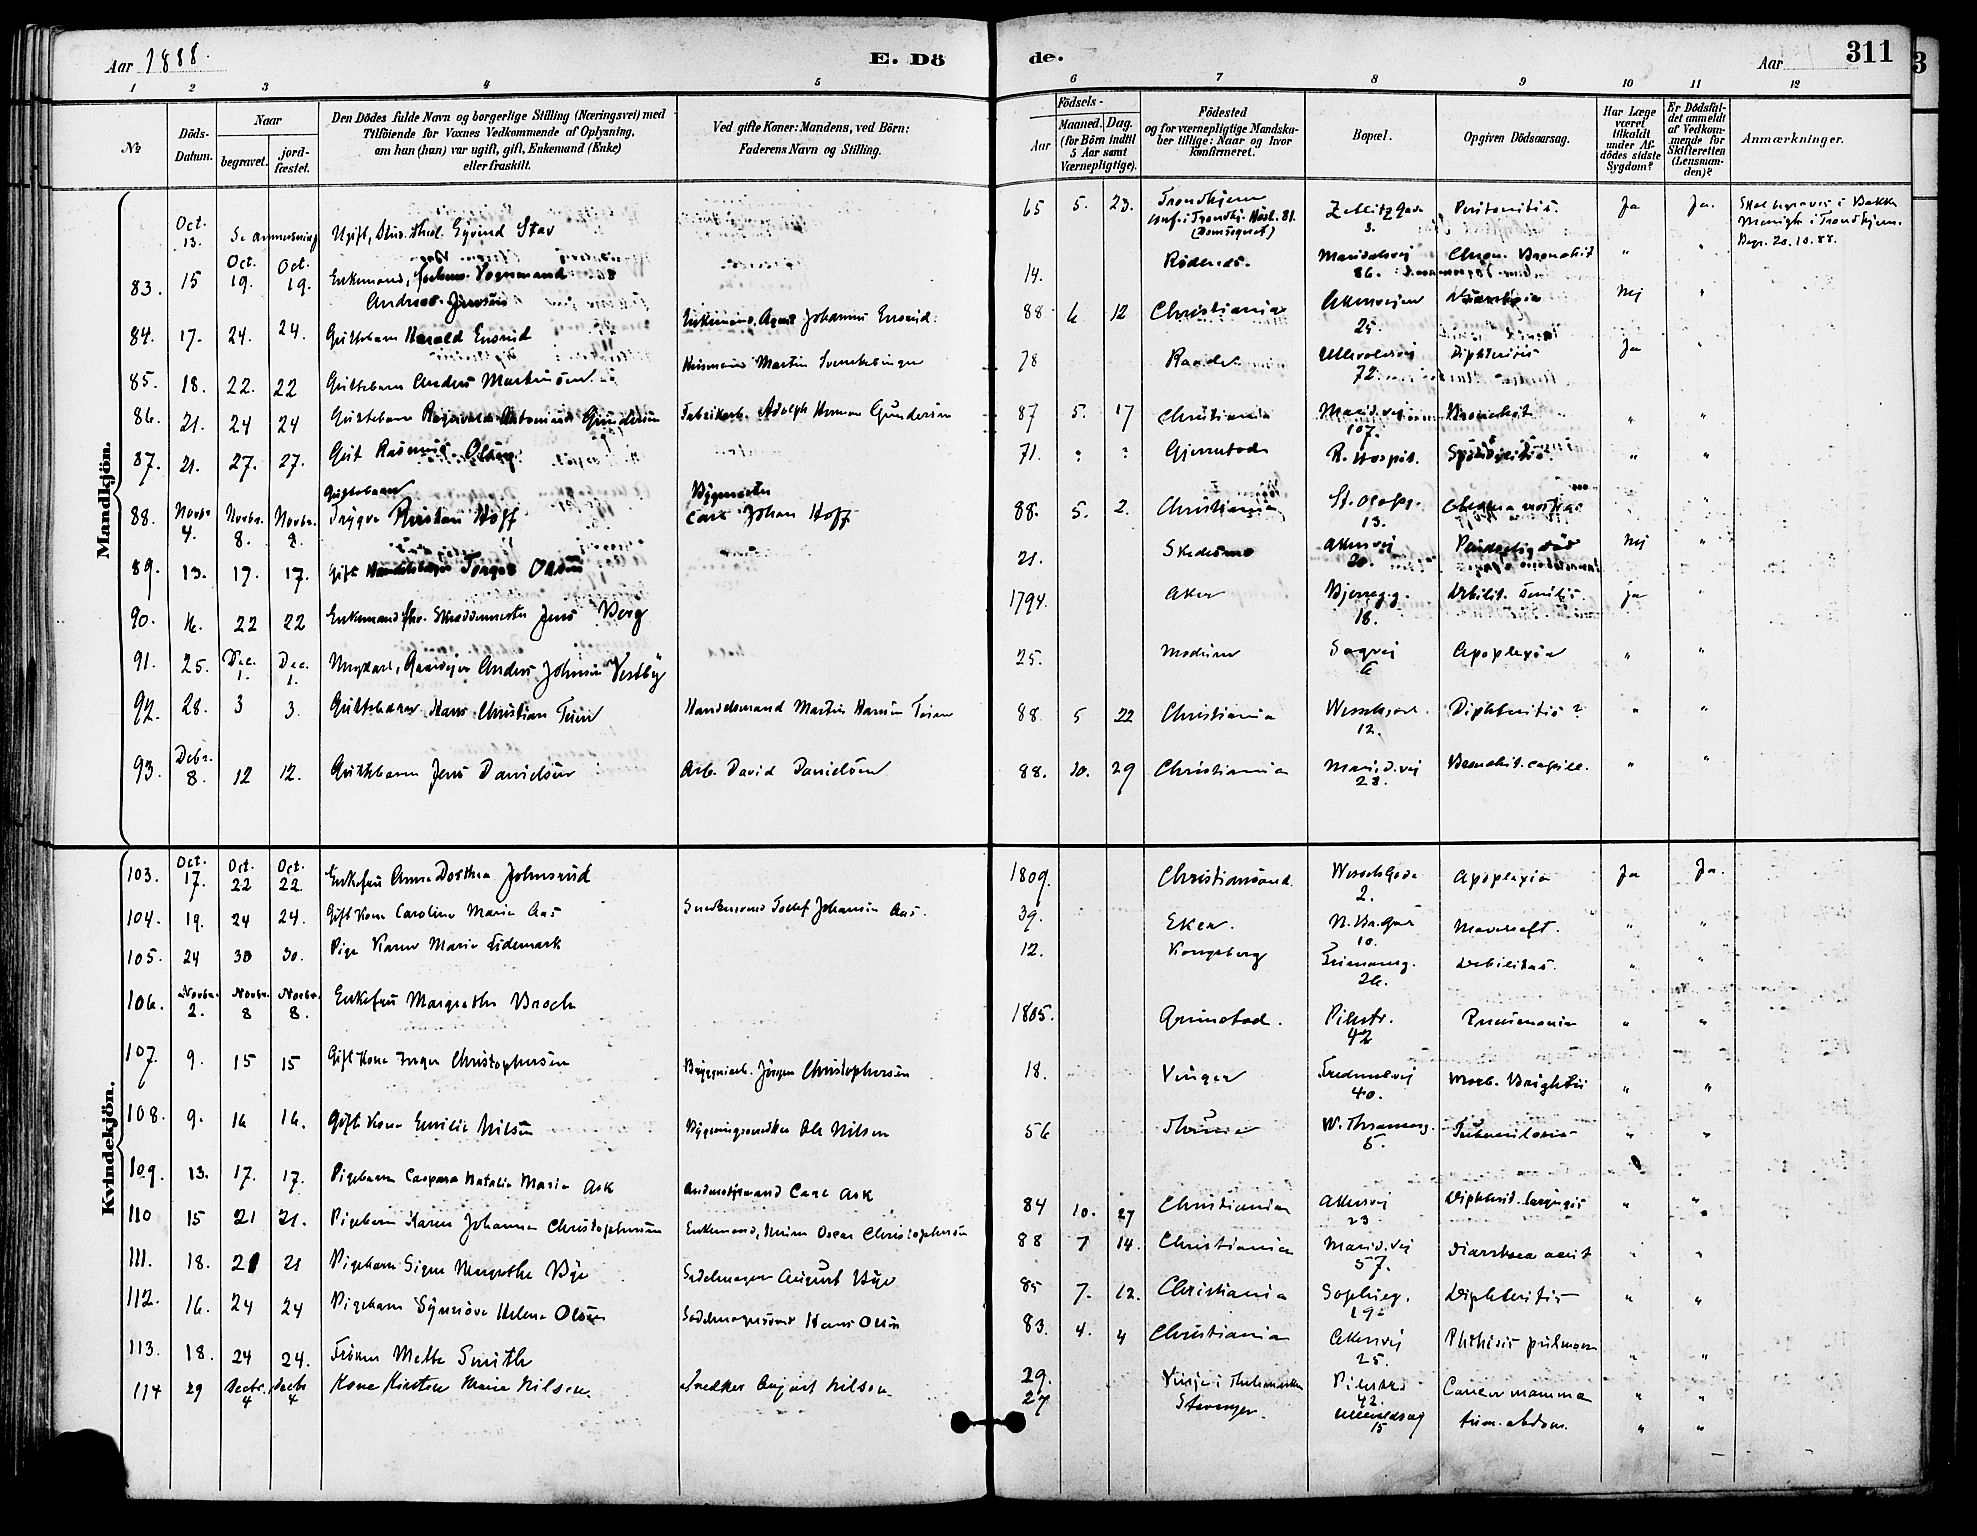 Aar 1888.
E. Dö
de.
Aar
311
3
1 2 3 4 5
6 7 8 9 10 11 12
No
Döds-Datum.
Naar
begravet.
jord-fæstet.
Den Dödes fulde Navn og borgerlige Stilling (Næringsvei) med
Tilföiende for Voxnes Vedkommende af Oplysning,
om han (hun) var ugift, gift, Enkemand (Enke)
eller fraskilt.
Ved gifte Koner: Mandens, ved Börn:
Faderens Navn og Stilling.
Födsels-
Aar
Maaned. Dag.
(for Börn indtil
5 Aar samt
Værnepligtige).
Födested
og for værnepligtige Mandska-
ber tillige: Naar og hvor
konfirmeret.
Bopæl.
Opgiven Dödsaarsag.
Har Læge
været
tilkaldt
under Af-
dödes sidste
Sygdom?
Er Dödsfal-
det anmeldt
af Vedkom-
mende for
Skifteretten
(Lensman-
den)?
Anmærkninger.
Mandkjön.
Oct. 13. Se anmerkning Ugift, Stud. theol. Eyvind Stav 65 5. 23. Trondhjem Conf. i Trondhj. Høst. 81. (Domsognet) Zetlitz Gade 3. Peritonitis. Ja Ja. Skal begraves i Bakke Menigh. i Trondhjem. Begr. 20.10.88.
83. 15 Oct. 19. Oct. 19. Enkemand, Vognmand Andreas Jensen 14. Rödenes. Maridalsvej 86. Chron. Bronchit " "
84. 17. 24. 24. Guttebarn Harald Ensrud Enkemand, Johannes Ensrud. 88 6 12 Christiania Akersvejen 25. Nej "
85. 18. 22. 22 Guttebarn Anders Martinsen Martin Svenskebinger 78 Raade Ullevoldsvej 72. Diphteritis Ja "
86. 21. 24 24 Guttebarn Gundersen Fabrikarb. Adolph Herman Gundersen 87 5. 17 Christiania Marid.vej 107. Bronchit " "
87. 21. 27. 27. Gut Rasmus Olsen 71. : : Gjerrestad R. Hospit. " "
88. Novbr. 4. Novbr. 8. Novbr. 8. Guttebarn Trygve Kristian Hoff Bygmester Carl Johan Hoff 88. 5. 2. Christiania St. Olafsg. 13. Cholera nostras " "
89. 13. 17. 17. Gift Torger Olsen 21. Skedsmo Akersvej 20. Pludselig död Nej "
90. 16. 22 22 Enkemand, fhv. Skreddermester Jens Berg 1794. Aker Bjerregg. 18. Debilit. senilis. Ja "
91. 25. Dec. 1. Dec. 1. Ungkarl, Anders Johnsen Vestby 25. Modum Sagvej 6 Apoplexia " "
92. 28. 3 3. Guttebarn Hans Christian Teien Handelsmand Martin Hansen Teien 88. 5 22 Christiania Wesselsgade 12. Diphteritis? " "
93. Debr. 8. 12 12. Guttebarn Jens Danielsen Arb. David Danielsen 88. 10. 29 Christiania Marid.vej 23. Bronchit. capill. " "
Kvindekjön.
103. Oct. 17. Oct. 22 Oct. 22 Enkefru Anne Dorthea Johnsrud 1809. Christianssand. Wessels Gade 2. Apoplexia Ja Ja.
104. 19. 24 24. Gift Kone Caroline Marie Aas Snedkersvend Johansen Aas. 39. Eker. N. Br.gade 10. " "
105. 24 30 30. Pige Karen Marie Lidemark 12. Kongsberg Frimannsg. 26. Debilitas. " "
106. Novbr. 2. Novbr. 8 Novbr. 8. Enkefru Margrethe Broch 1805. Grimstad. Pilestr. 42 Pneumonia " "
107. 9. 15 15 Gift Kone Inger Christophersen Bryggeriarb. Jörgen Christophersen 18. Vinger Fredensvej 40. Morb. Brightii " "
108. 9. 16 16. Gift Kone Emilie Nilsen Bygningssnedker Ole Nilsen 56 W. Thranesg. 5. Tuberculosis " "
109. 13. 17. 17. Pigebarn Caspara Natalia Marie Ask Carl Ask 84 10. 27 Christiania Akersvej 23 Diphterit. laryngis " "
110 15 21 21. Pigebarn Karen Johanne Christophersen Enkemand, Murer Oscar Christophersen 88 7 14. Christiania Marid.vej 57. Diarrhoea acut " "
111. 18. 21 21 Pigebarn Signe Margrethe Bye Sadelmager August Bye 85 7. 12. Christiania Sophieg. 19. Diphteritis " "
112. 16. 24 24 Pigebarn Synnöve Helene Olsen Sadelmagersvend Hans Olsen 83. 4. 4 Christiania Akersvej 25. Phthisis pulmon " "
113. 18. 24 24. Fröken Mette Smith 29. Vinje i Thelemarken Pilestr. 42. Cancer mamma " "
114 29 Decbr. 4 Decbr. 4 Kone Kirsten Marie Nilsen. Snedker August Nilsen 27 Stavanger. Ullevoldsvej 15 tum. abdom. " "